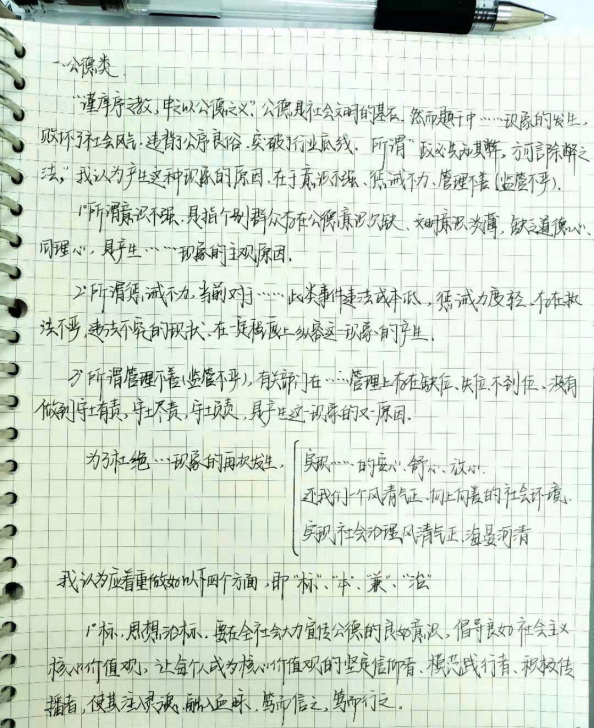 一.公德类.
“谨庠序之教,申之以公德之义”,公德是社会文明的基石.然而题干中……现象的发生,
败坏了社会风气,违背了公序良俗,突破了行业底线.所谓“政必先知其弊,方可言除弊之
法,”我认为产生这种现象的原因,在于意识不强、惩诫不力、管理不善(监管不严).
1°所谓意识不强,是指个别群众存在公德意识欠缺、文明意识淡薄,缺乏道德心、
同理心,是产生……现象的主观原因.
2°所谓惩诫不力,当前对于……此类事件违法成本低,惩诫力度轻、存在执
法不严,违法不究的现状、在一定程度上纵容这一现象的产生.
3°所谓管理不善(监管不严),有关部门在……管理上存在缺位、失位不到位、没有
做到守土有责,守土尽责,守土负责,是产生这一现象的又一原因.
为了杜绝…现象的再次发生,
实现……的安心、舒心、放心.
还我们一个风清气正、向上向善的社会环境.
实现社会治理风清气正,海晏河清
我认为应着重做好以下四个方面,即“标”、“本”、“兼”、“治”
1°标,思想治标.要在全社会大力宣传公德的良好意识,倡导良好社会主义
核心价值观,让每个人成为核心价值观的坚定信仰者、模范践行者、积极传
播者,使其注入灵魂,融入血脉,笃而信之,笃而行之.